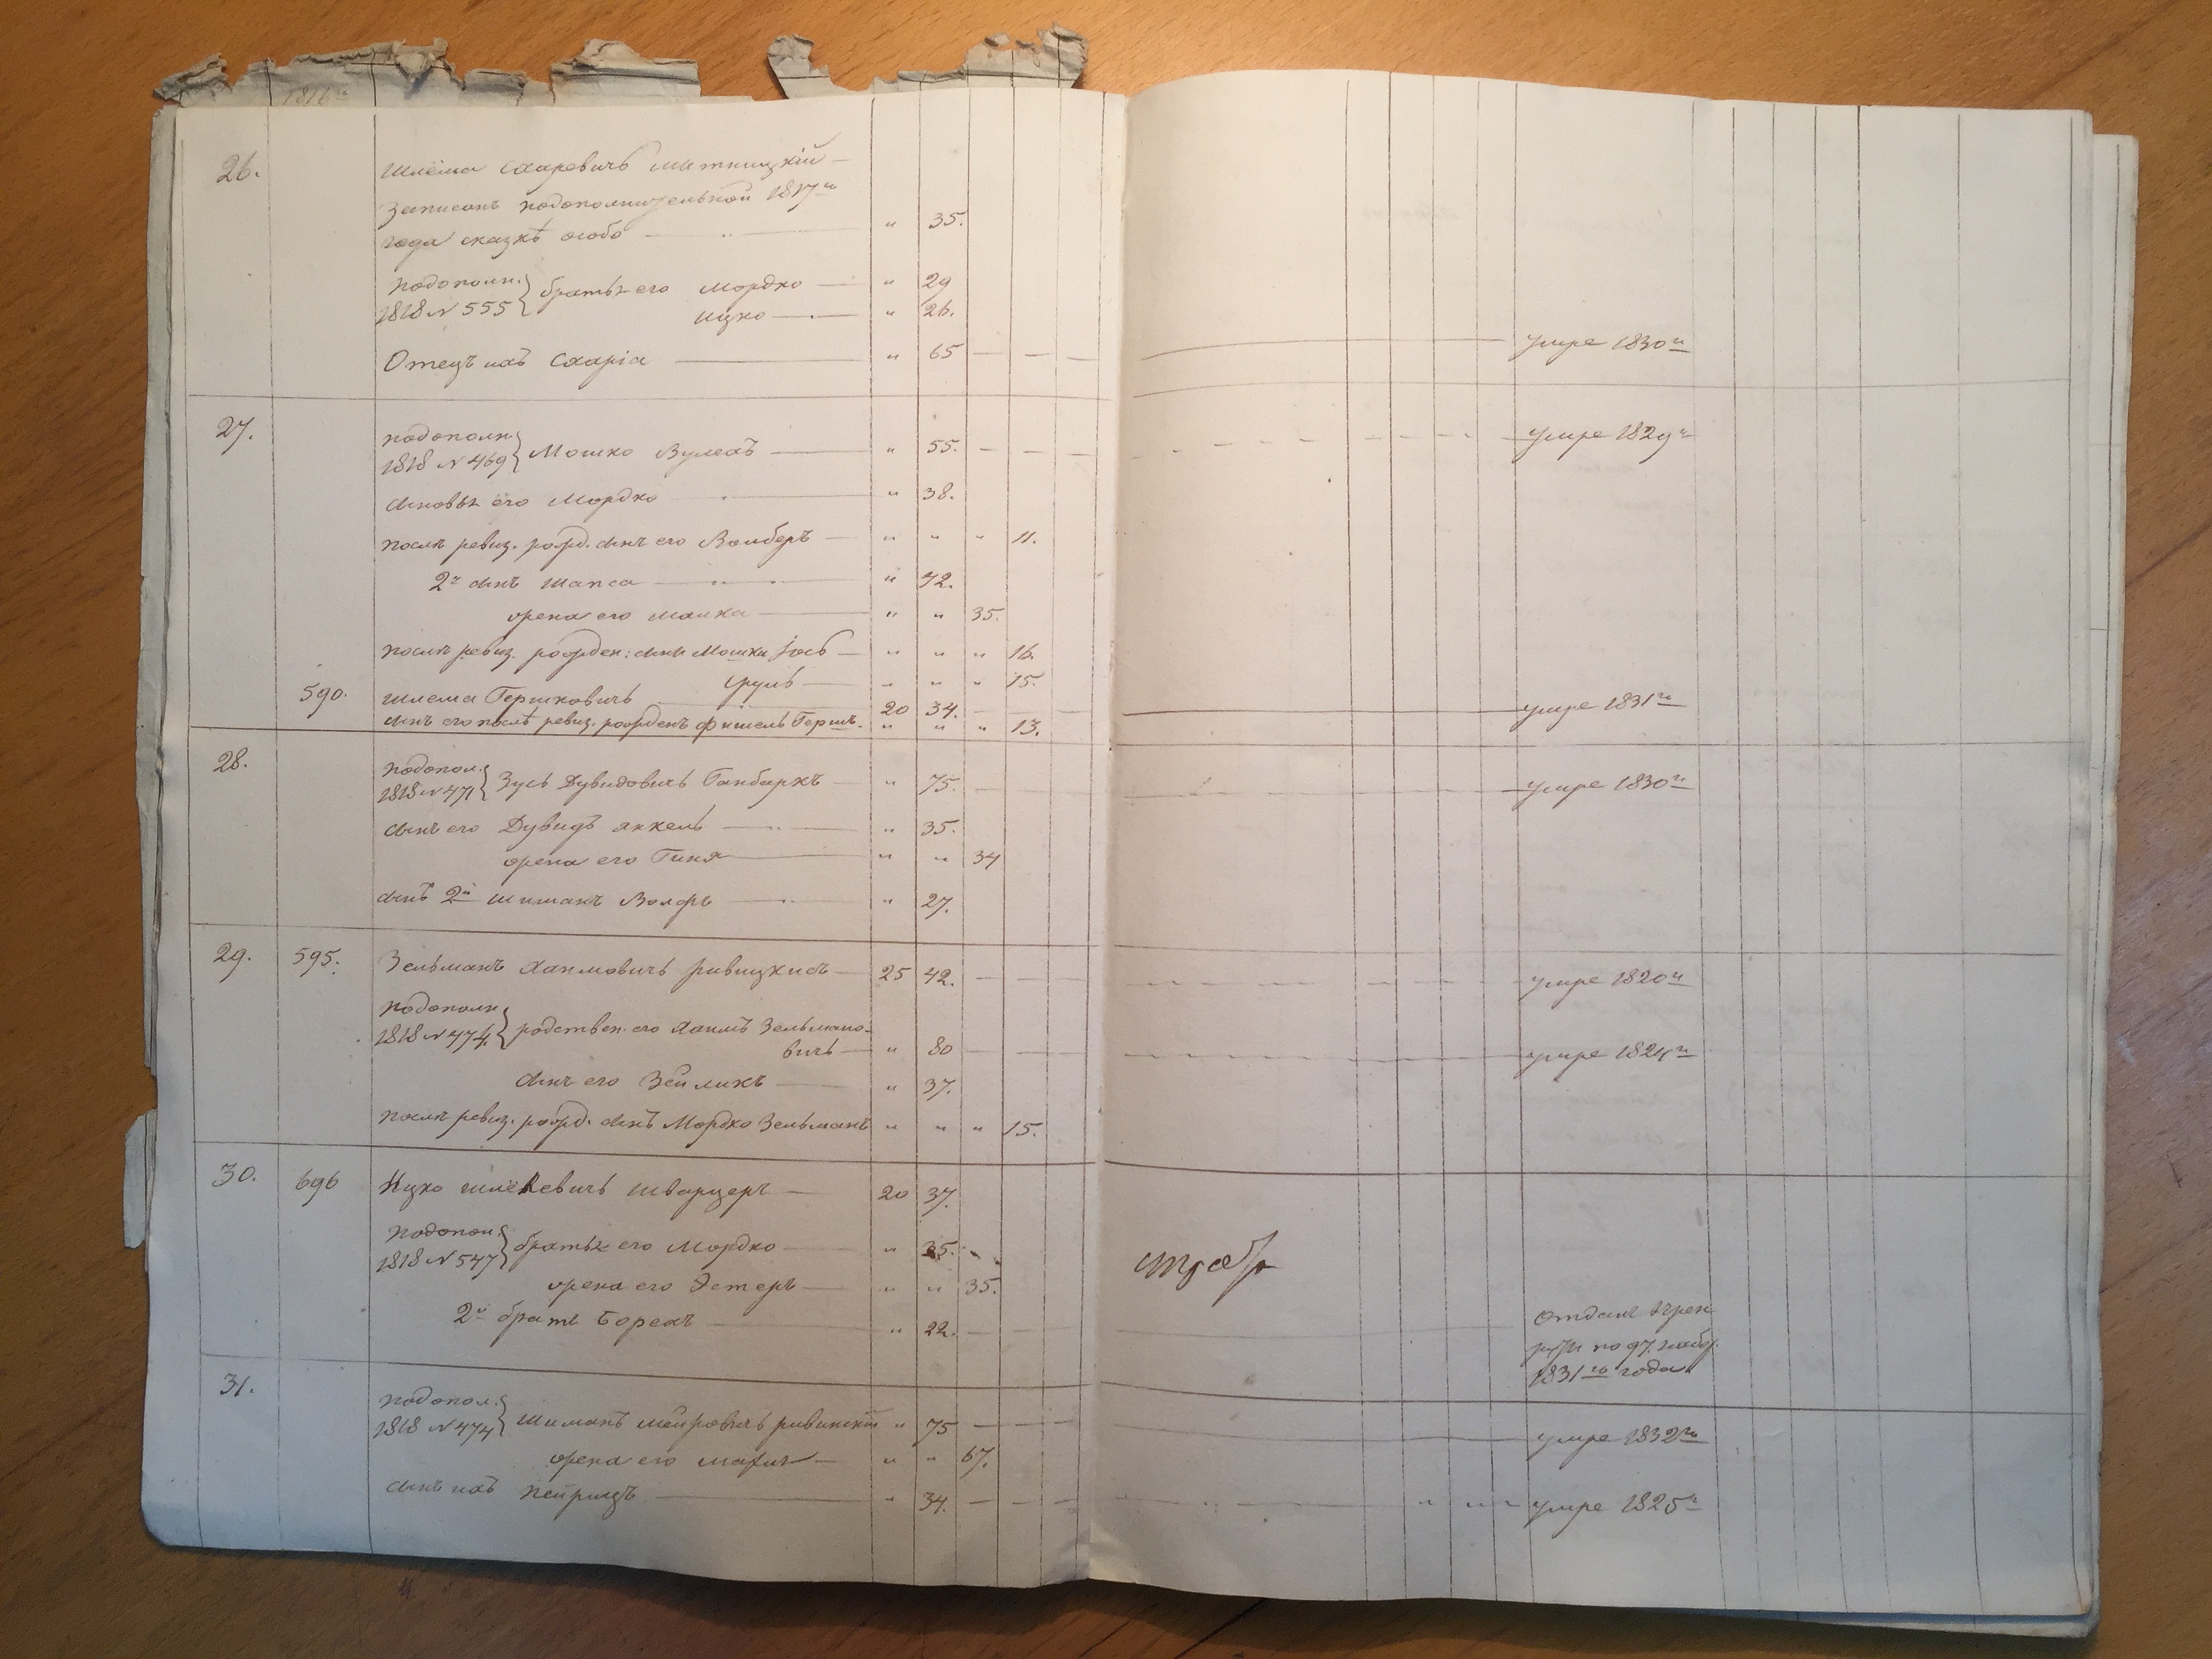 1816го
26. Шлёма Сахаревичъ Митницкій —
Записанъ подополнительной 1817го
года сказкѣ особо — " 35.
подополн. 1818 N 555 } братья его Мордко — " 29
Ицко — " 26.
Отецъ ихъ Сахаріа — " 65 — — — умре 1830го
27. подополн. 1818 N 469 } Мошко Вулехъ — " 55. — — — умре 1829го
сыновья его Мордко — " 38.
послѣ ревиз. рожд. сынъ его Вольберъ — " " " 11.
2й сынъ Шапса — " 42.
жена его Малка — " " 35.
послѣ ревиз. рожден: сыны Мошки Іось — " " " 16.
Сруль — " " " 15.
590. Шлема Гершковичъ 20 34. — умре 1831го
сынъ его послѣ ревиз. рожденъ Фишель Герш. " " " 13.
28. подопол. 1818 N 471 } Зусь Дувидовичъ Ганбаркъ — " 75. — умре 1830го
сынъ его Дувидъ Янкель — " 35.
жена его Гиня — " " 34
сынъ 2й Шиманъ Волфъ — " 27.
29. 595. Зельманъ Хаимовичъ — 25 42. — умре 1820го
подополн. 1818 N 474 } родствен. его Хаимъ Зельмано-
вичъ — " 80 — умре 1824го
сынъ его Зейликъ — " 37.
послѣ ревиз. рожд. сынъ Мордко Зельманъ " " " 15.
30. 696 Ицко Шварцеръ — 20 37.
подопол. 1818 N 547 } братья его Мордко — " 35.
жена его Эстеръ — " " 35.
2й братъ Борехъ — " 22. —
1831го года
31. подопол. 1818 N 474 } Шиманъ Мейровичъ " 75 — — — умре 1832го
жена его — " " 67.
сынъ ихъ — " 34. — — — умре 1825го